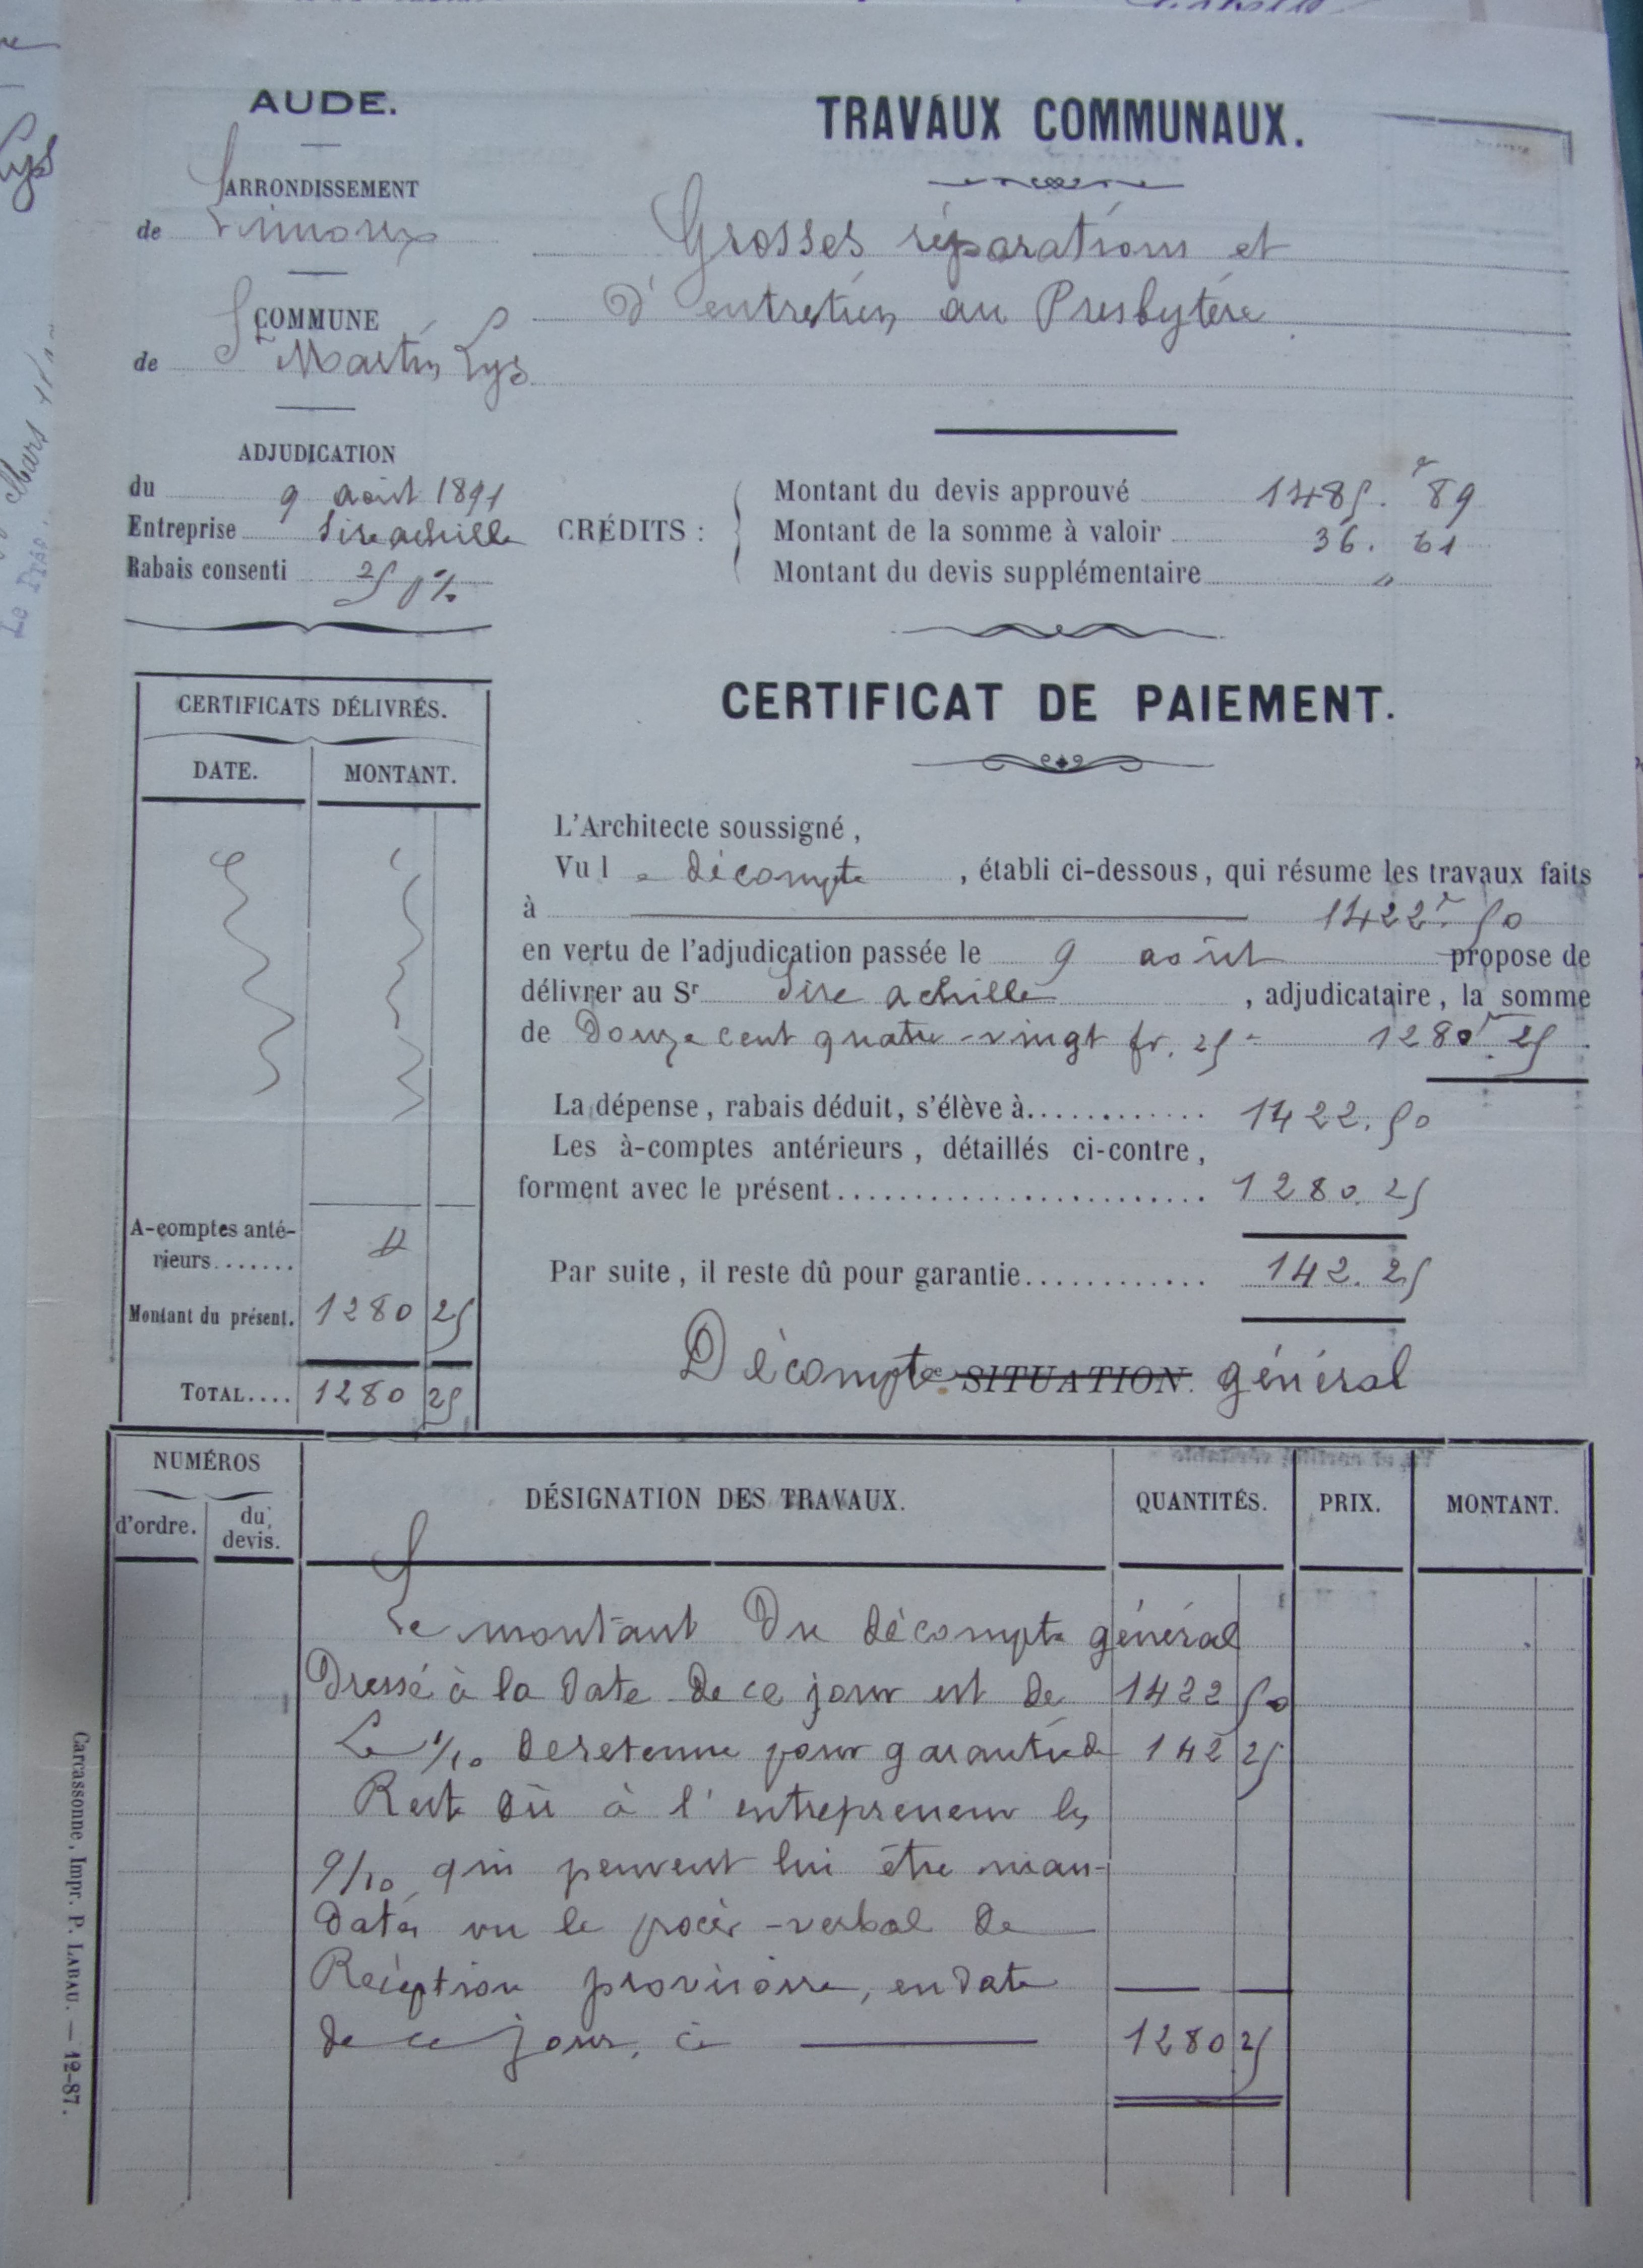 AUDE.
ARRONDISSEMENT
de Limoux
COMMUNE
de St Martin Lys
TRAVAUX COMMUNAUX.
Grosses réparations et
d'entretien au Presbytère
ADJUDICATION
du 9 août 1891
Entreprise Sire achille
Rabais consenti 25 p%
CRÉDITS :
Montant du devis approuvé 1485. f 89
Montant de la somme à valoir 36. 61
Montant du devis supplémentaire "
CERTIFICATS DÉLIVRÉS.
DATE. MONTANT.
A-comptes anté-
rieurs.......
Montant du présent. 1280 25
TOTAL.... 1280 25
CERTIFICAT DE PAIEMENT.
L'Architecte soussigné,
Vu le décompte, établi ci-dessous, qui résume les travaux faits
à 1422f. 50
en vertu de l'adjudication passée le 9 août propose de
délivrer au Sr Sire achille, adjudicataire, la somme
de Douze cent quatre-vingt fr. 25 = 1280f. 25
La dépense, rabais déduit, s'élève à............ 1422. 50
Les à-comptes antérieurs, détaillés ci-contre,
forment avec le présent........................ 1280. 25
Par suite, il reste dû pour garantie............ 142. 25
Décompte SITUATION. général
NUMÉROS
d'ordre. du devis.
DÉSIGNATION DES TRAVAUX. QUANTITÉS. PRIX. MONTANT.
Le montant du décompte général
Dressé à la date de ce jour est de 1422 50
Le 1/10 de retenue pour garantie de 142 25
Reste dû à l'entrepreneur les
9/10 qui peuvent lui être man-
datés vu le procès-verbal de
Réception provisoire, en date
de ce jour, ci 1280 25
Carcassonne, Impr. P. LABAU. — 12-87.